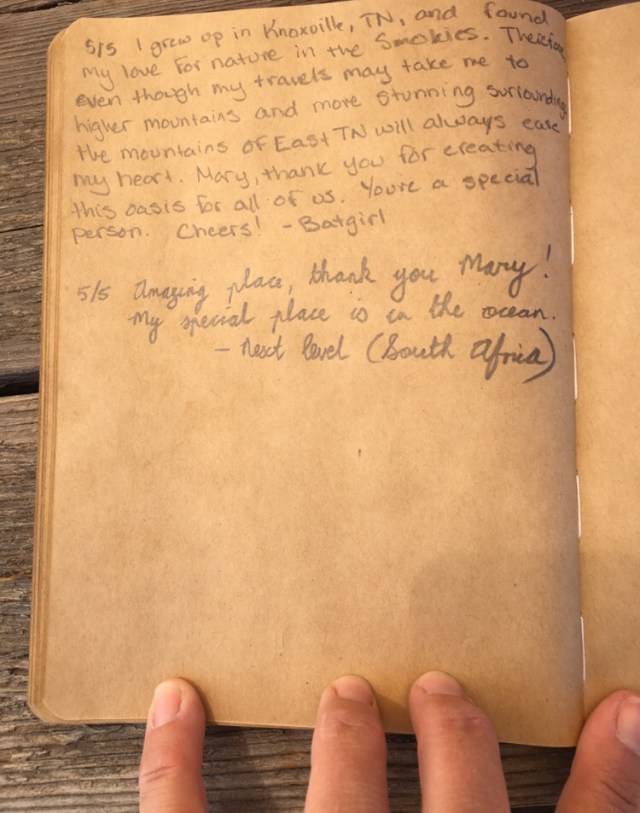 5/5 I grew up in Knoxville, TN, and found
my love for nature in the Smokies. Therefore
even though my travels may take me to
higher mountains and more stunning surroundings
the mountains of East TN will always ease
my heart. Mary, thank you for creating
this oasis for all of us. You're a special
person. Cheers! - Batgirl
5/5 Amazing place, thank you Mary!
My special place is in the ocean.
- Next level (South Africa)